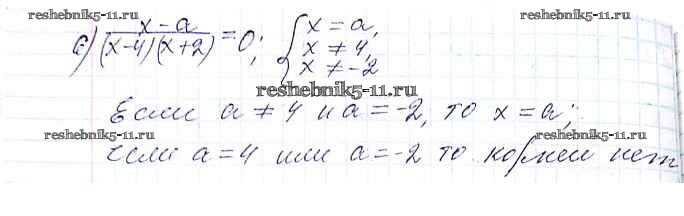 reshebnik5-11.ru reshebnik5-11.ru
б) (x-a)/((x-4)(x+2)) = 0; { x = a, x ≠ 4, x ≠ -2
Если a ≠ 4 и a = -2, то x = a;
reshebnik5-11.ru reshebnik5-11.ru
если a = 4 или a = -2 то корней нет